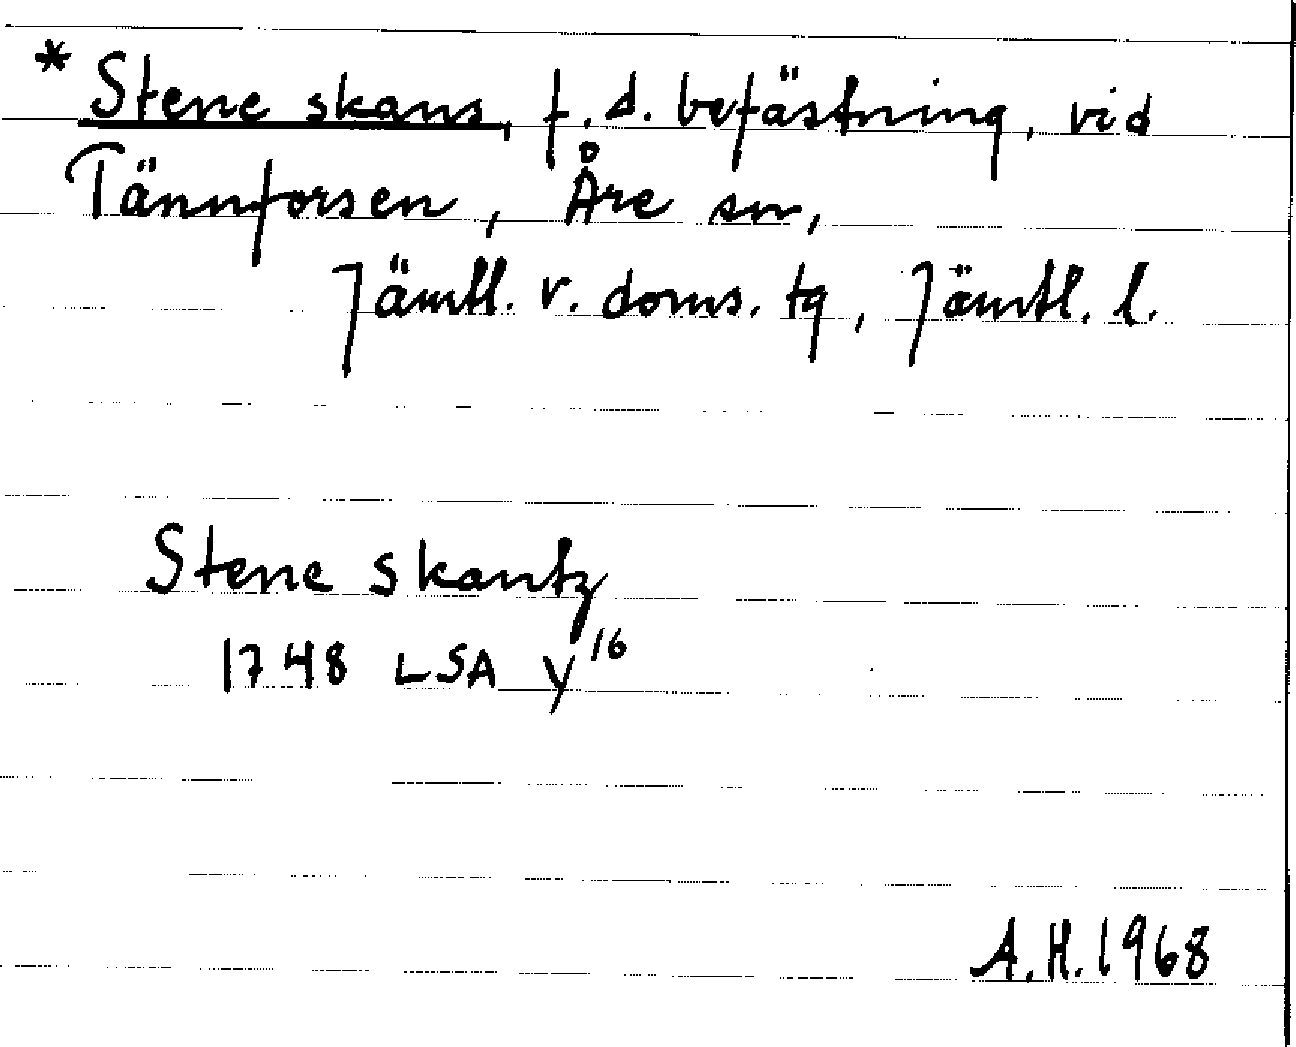 * Stene skans, f.d. befästning, vid
Tännforsen, Åre sn,
Jämtl. v. doms. tg, Jämtl. l.
Stene skantz
1748 LSA y16
A.H. 1968